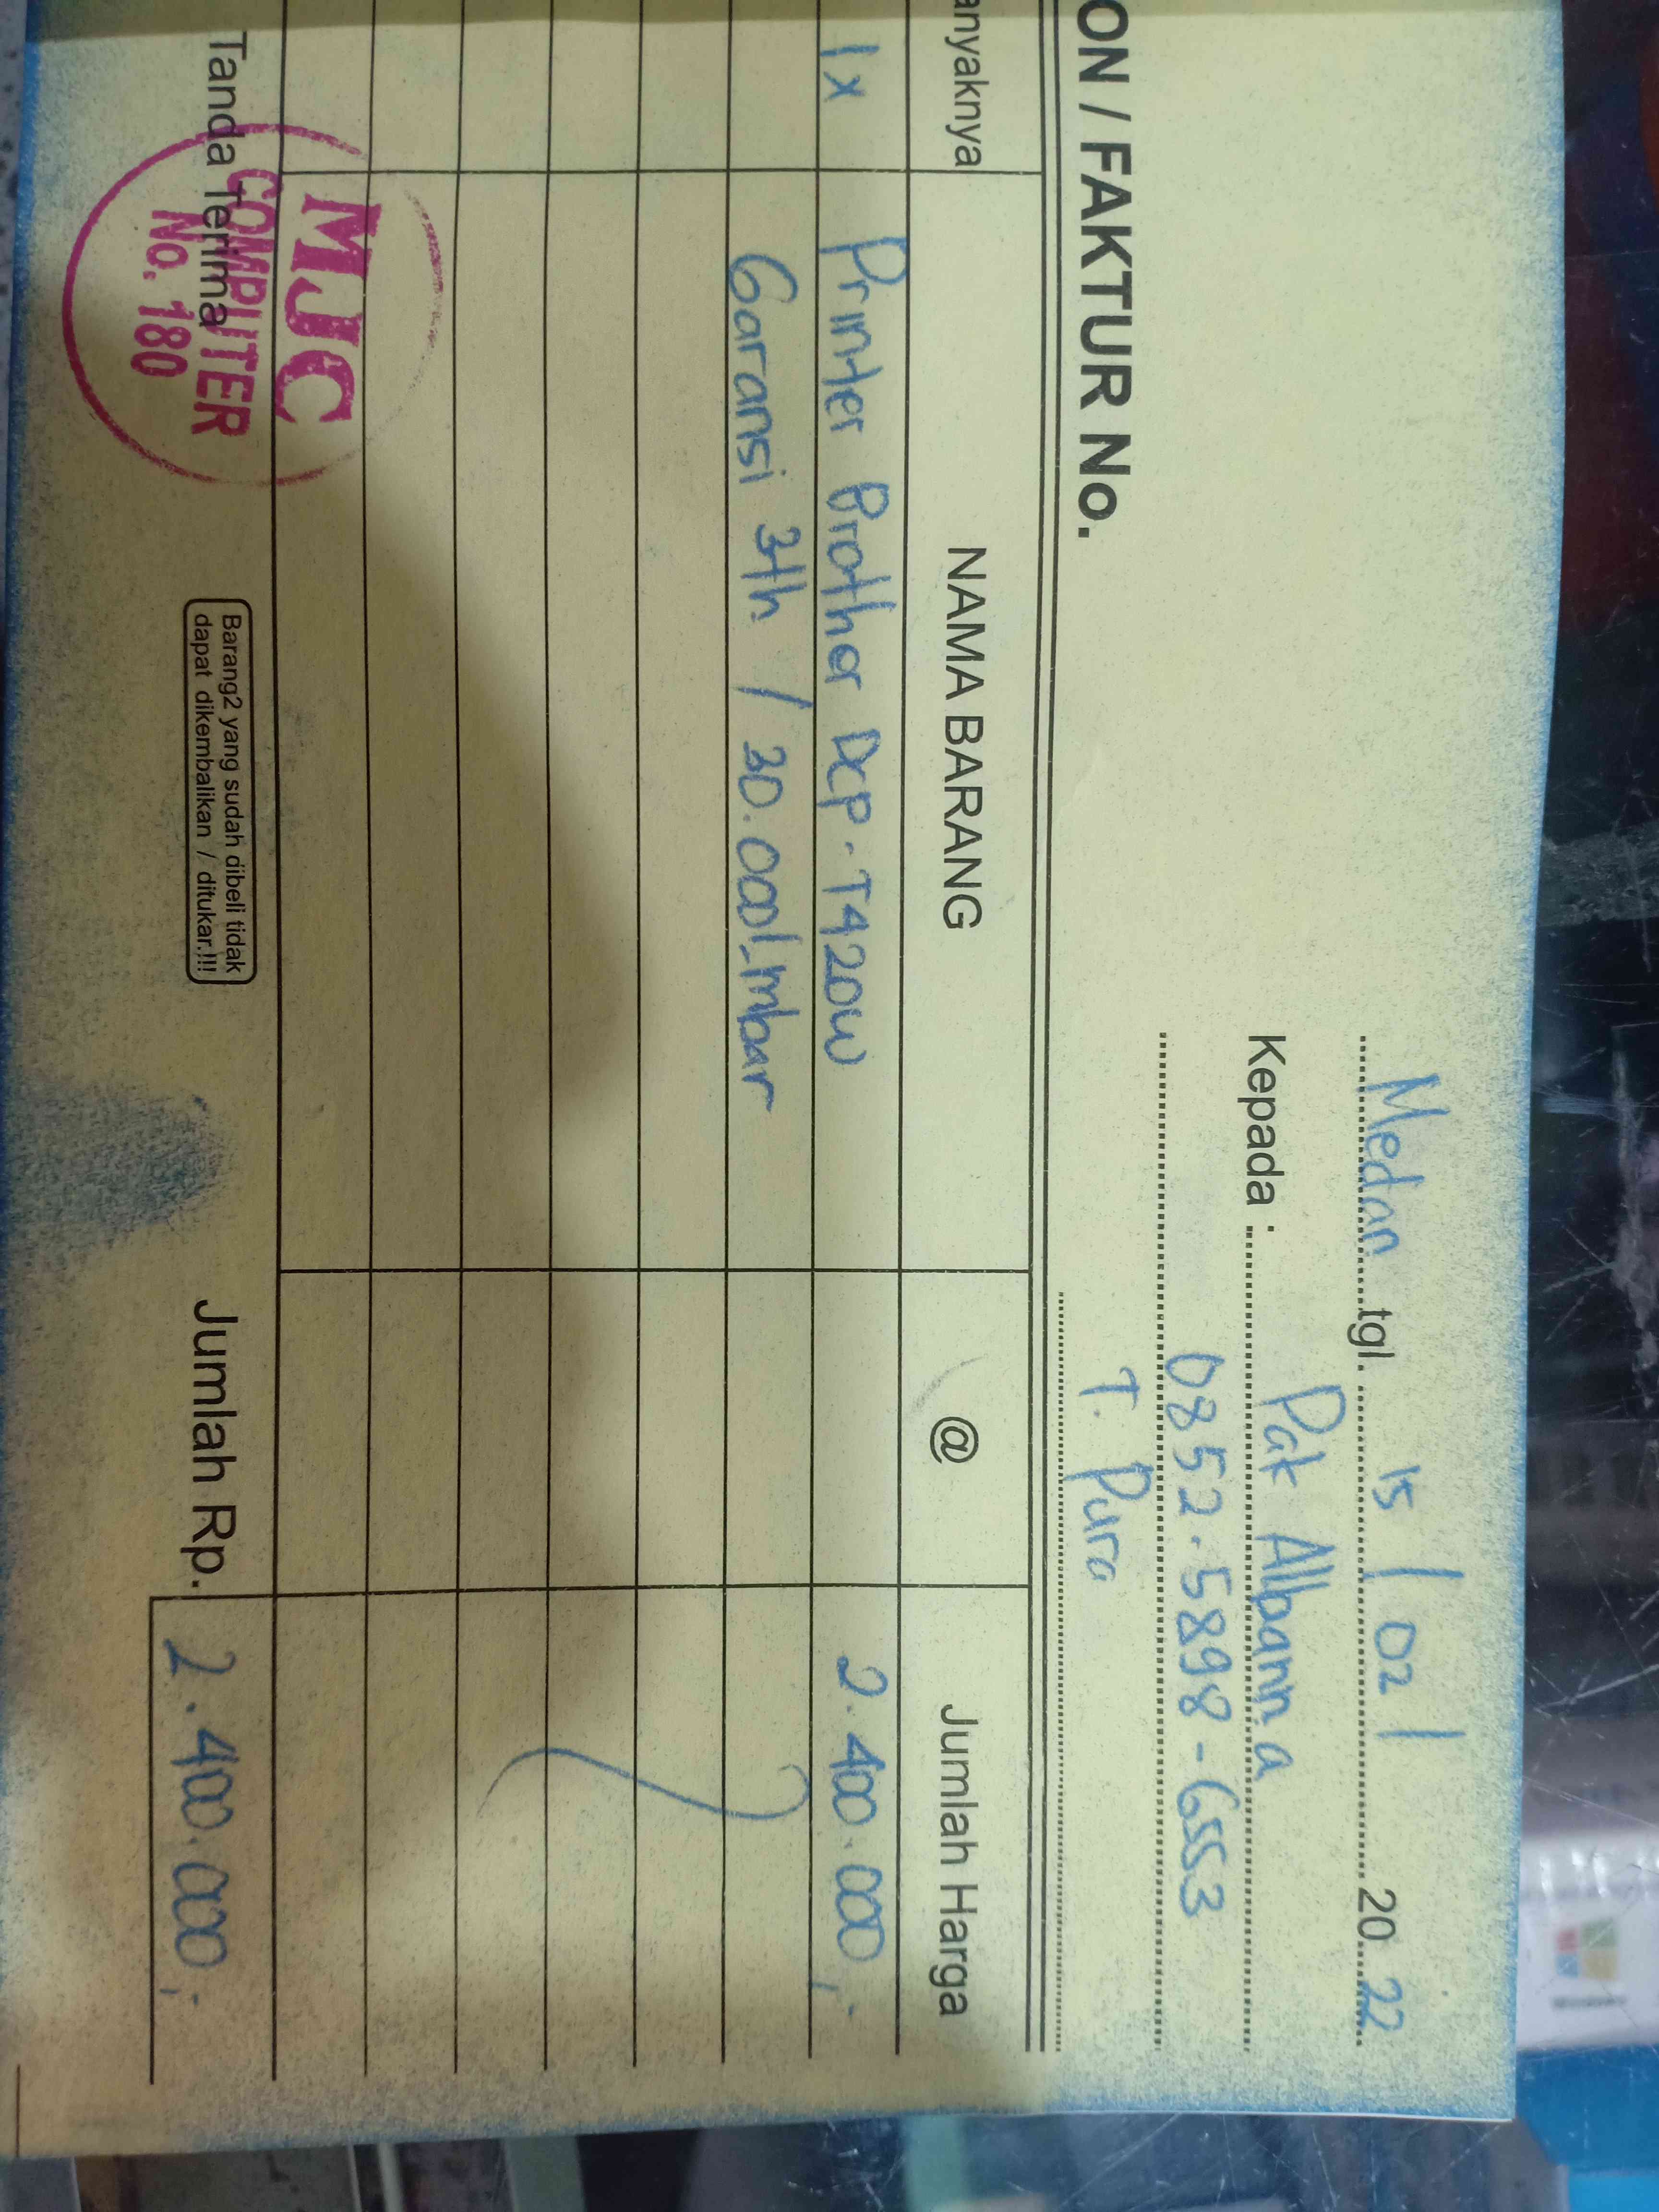 Medan tgl. 15 / 02 / 20 22
Kepada : Pak Albanna
0852.5898-6553
T. Pura
ON / FAKTUR No.
anyaknya NAMA BARANG @ Jumlah Harga
1x Printer Brother DCP-T420W 2.400.000,-
Garansi 3th / 30.000 lmbar
Tanda Terima
MJC
COMPUTER
No. 180
Barang2 yang sudah dibeli tidak
dapat dikembalikan / ditukar.!!!
Jumlah Rp. 2.400.000,-